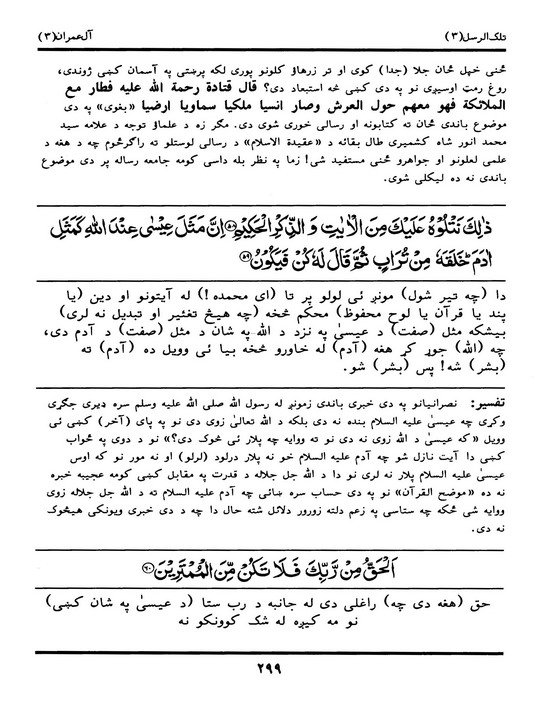 تلک الرسل (۳) آل عمران (۳)
ځنی خپل ځان جلا (جدا) کوی او تر زرهاؤ کلونو پوری لکه پرښتی په آسمان کښی ژوندی،
روغ رمت اوسیږی نو په دی کښی څه استبعاد دی؟ قال قتادة رحمة الله عليه فطار مع
الملائكة فهو معهم حول العرش وصار انسيا ملكيا سماويا ارضيا «بغوی» په دی
موضوع باندی ځان ته کتابونه او رسالی خوری شوی دی. مګر زه د علماؤ توجه د علامه سید
محمد انور شاه کشمیری طال بقائه د «عقیدة الاسلام» د رسالی لوستلو ته راګرځوم چه د هغه د
علمی لعلونو او جواهرو ځنی مستفید شی! زما په نظر بله داسی کومه جامعه رساله پر دی موضوع
باندی نه ده لیکلی شوی.
ذٰلِكَ نَتْلُوْهُ عَلَيْكَ مِنَ الْاٰيٰتِ وَ الذِّكْرِ الْحَكِيْمِ ۵۸ اِنَّ مَثَلَ عِيْسٰى عِنْدَ اللّٰهِ كَمَثَلِ
اٰدَمَ خَلَقَهٗ مِنْ تُرَابٍ ثُمَّ قَالَ لَهٗ كُنْ فَيَكُوْنُ ۵۹
دا (چه تیر شول) مونږ ئی لولو پر تا (ای محمده!) له آیتونو او دین (یا
پند یا قرآن یا لوح محفوظ) محکم څخه (چه هیڅ تغئیر او تبدیل نه لری)
بیشکه مثل (صفت) د عیسیٰ په نزد د الله په شان د مثل (صفت) د آدم دی،
چه (الله) جوړ کړ هغه (آدم) له خاورو څخه بیا ئی وویل ده (آدم) ته
(بشر) شه! پس (بشر) شو.
تفسیر: نصرانیانو په دی خبری باندی زمونږ له رسول الله صلی الله علیه وسلم سره ډیری جګړی
وکړی چه عیسیٰ علیه السلام بنده نه دی بلکه د الله تعالیٰ زوی دی نو په پای (آخر) کښی ئی
وویل «که عیسیٰ د الله زوی نه دی نو ته ووایه چه پلار ئی څوک دی؟» نو د دوی په ځواب
کښی دا آیت نازل شو چه آدم علیه السلام خو نه پلار درلود (لرلو) او نه مور نو که اوس
عیسیٰ علیه السلام پلار نه لری نو دا د الله جل جلاله د قدرت په مقابل کښی کومه عجیبه خبره
نه ده «موضح القرآن» نو په دی حساب سره ښائی چه آدم علیه السلام ته د الله جل جلاله زوی
ووایه شی ځکه چه ستاسی په زعم دلته زورور دلائل شته حال دا چه د دی خبری ویونکی هیڅوک
نه دی.
اَلْحَقُّ مِنْ رَّبِّكَ فَلَا تَكُنْ مِّنَ الْمُمْتَرِيْنَ ۶۰
حق (هغه دی چه) راغلی دی له جانبه د رب ستا (د عیسیٰ په شان کښی)
نو مه کیږه له شک کوونکو نه
۲۹۹